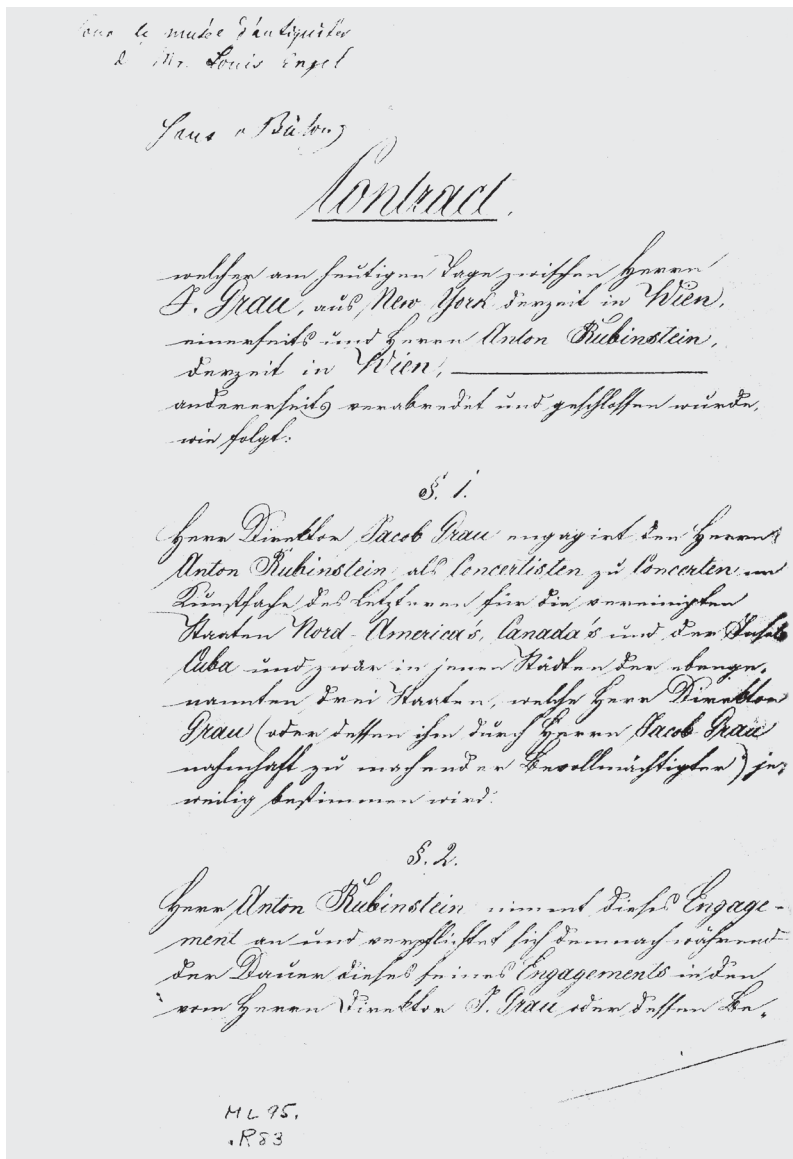 Pour le musée d'antiquités
d Mr. Louis Engel
Hans v Bülow
Contract.
welcher am heutigen Tage zwischen Herrn
J. Grau, aus New York derzeit in Wien,
einerseits und Herrn Anton Rubinstein,
derzeit in Wien,
andererseits verabredet und geschlossen wurde,
wie folgt:
§. 1.
Herr Direktor Jacob Grau engagirt den Herrn
Anton Rubinstein als Concertisten zu Concerten im
Kunstfache des Letzteren für die vereinigten
Staaten Nord-America's, Canada's und der Insel
Cuba und zwar in jenen Städten der obenge-
nannten drei Staaten, welche Herr Direktor
Grau (oder dessen ihm durch Herrn Jacob Grau
nahmhaft zu machender Bevollmächtigter) je-
weilig bestimmen wird.
§. 2.
Herr Anton Rubinstein nimmt dieses Engage-
ment an und verpflichtet sich demnach während
der Dauer dieses seines Engagements in den
vom Herrn Direktor J. Grau oder dessen Be-
ML 95.
.R83